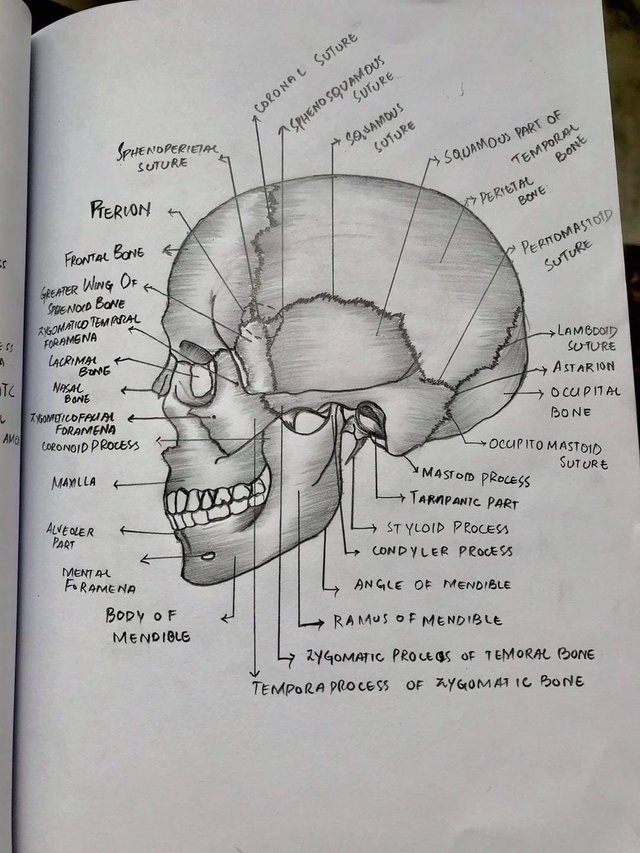 CORONAL SUTURE
SPHENOSQUAMOUS
SUTURE
SQUAMOUS
SUTURE
SQUAMOUS PART OF
TEMPORAL
BONE
SPHENOPERIETAL
SUTURE
PERIETAL
BONE
PTERION
PERITOMASTOID
SUTURE
FRONTAL BONE
GREATER WING OF
SPHENOID BONE
ZYGOMATICO TEMPORAL
FORAMENA
LAMBDOID
SUTURE
LACRIMAL
BONE
ASTARION
NASAL
BONE
OCCUPITAL
BONE
ZYGOMETICOFACIAL
FORAMENA
CORONOID PROCESS
OCCUPITOMASTOID
SUTURE
MAXILLA
MASTOID PROCESS
TAMPANIC PART
ALVEOLER
PART
STYLOID PROCESS
CONDYLER PROCESS
MENTAL
FORAMENA
ANGLE OF MENDIBLE
BODY OF
MENDIBLE
RAMUS OF MENDIBLE
ZYGOMATIC PROCESS OF TEMORAL BONE
TEMPORA PROCESS OF ZYGOMATIC BONE